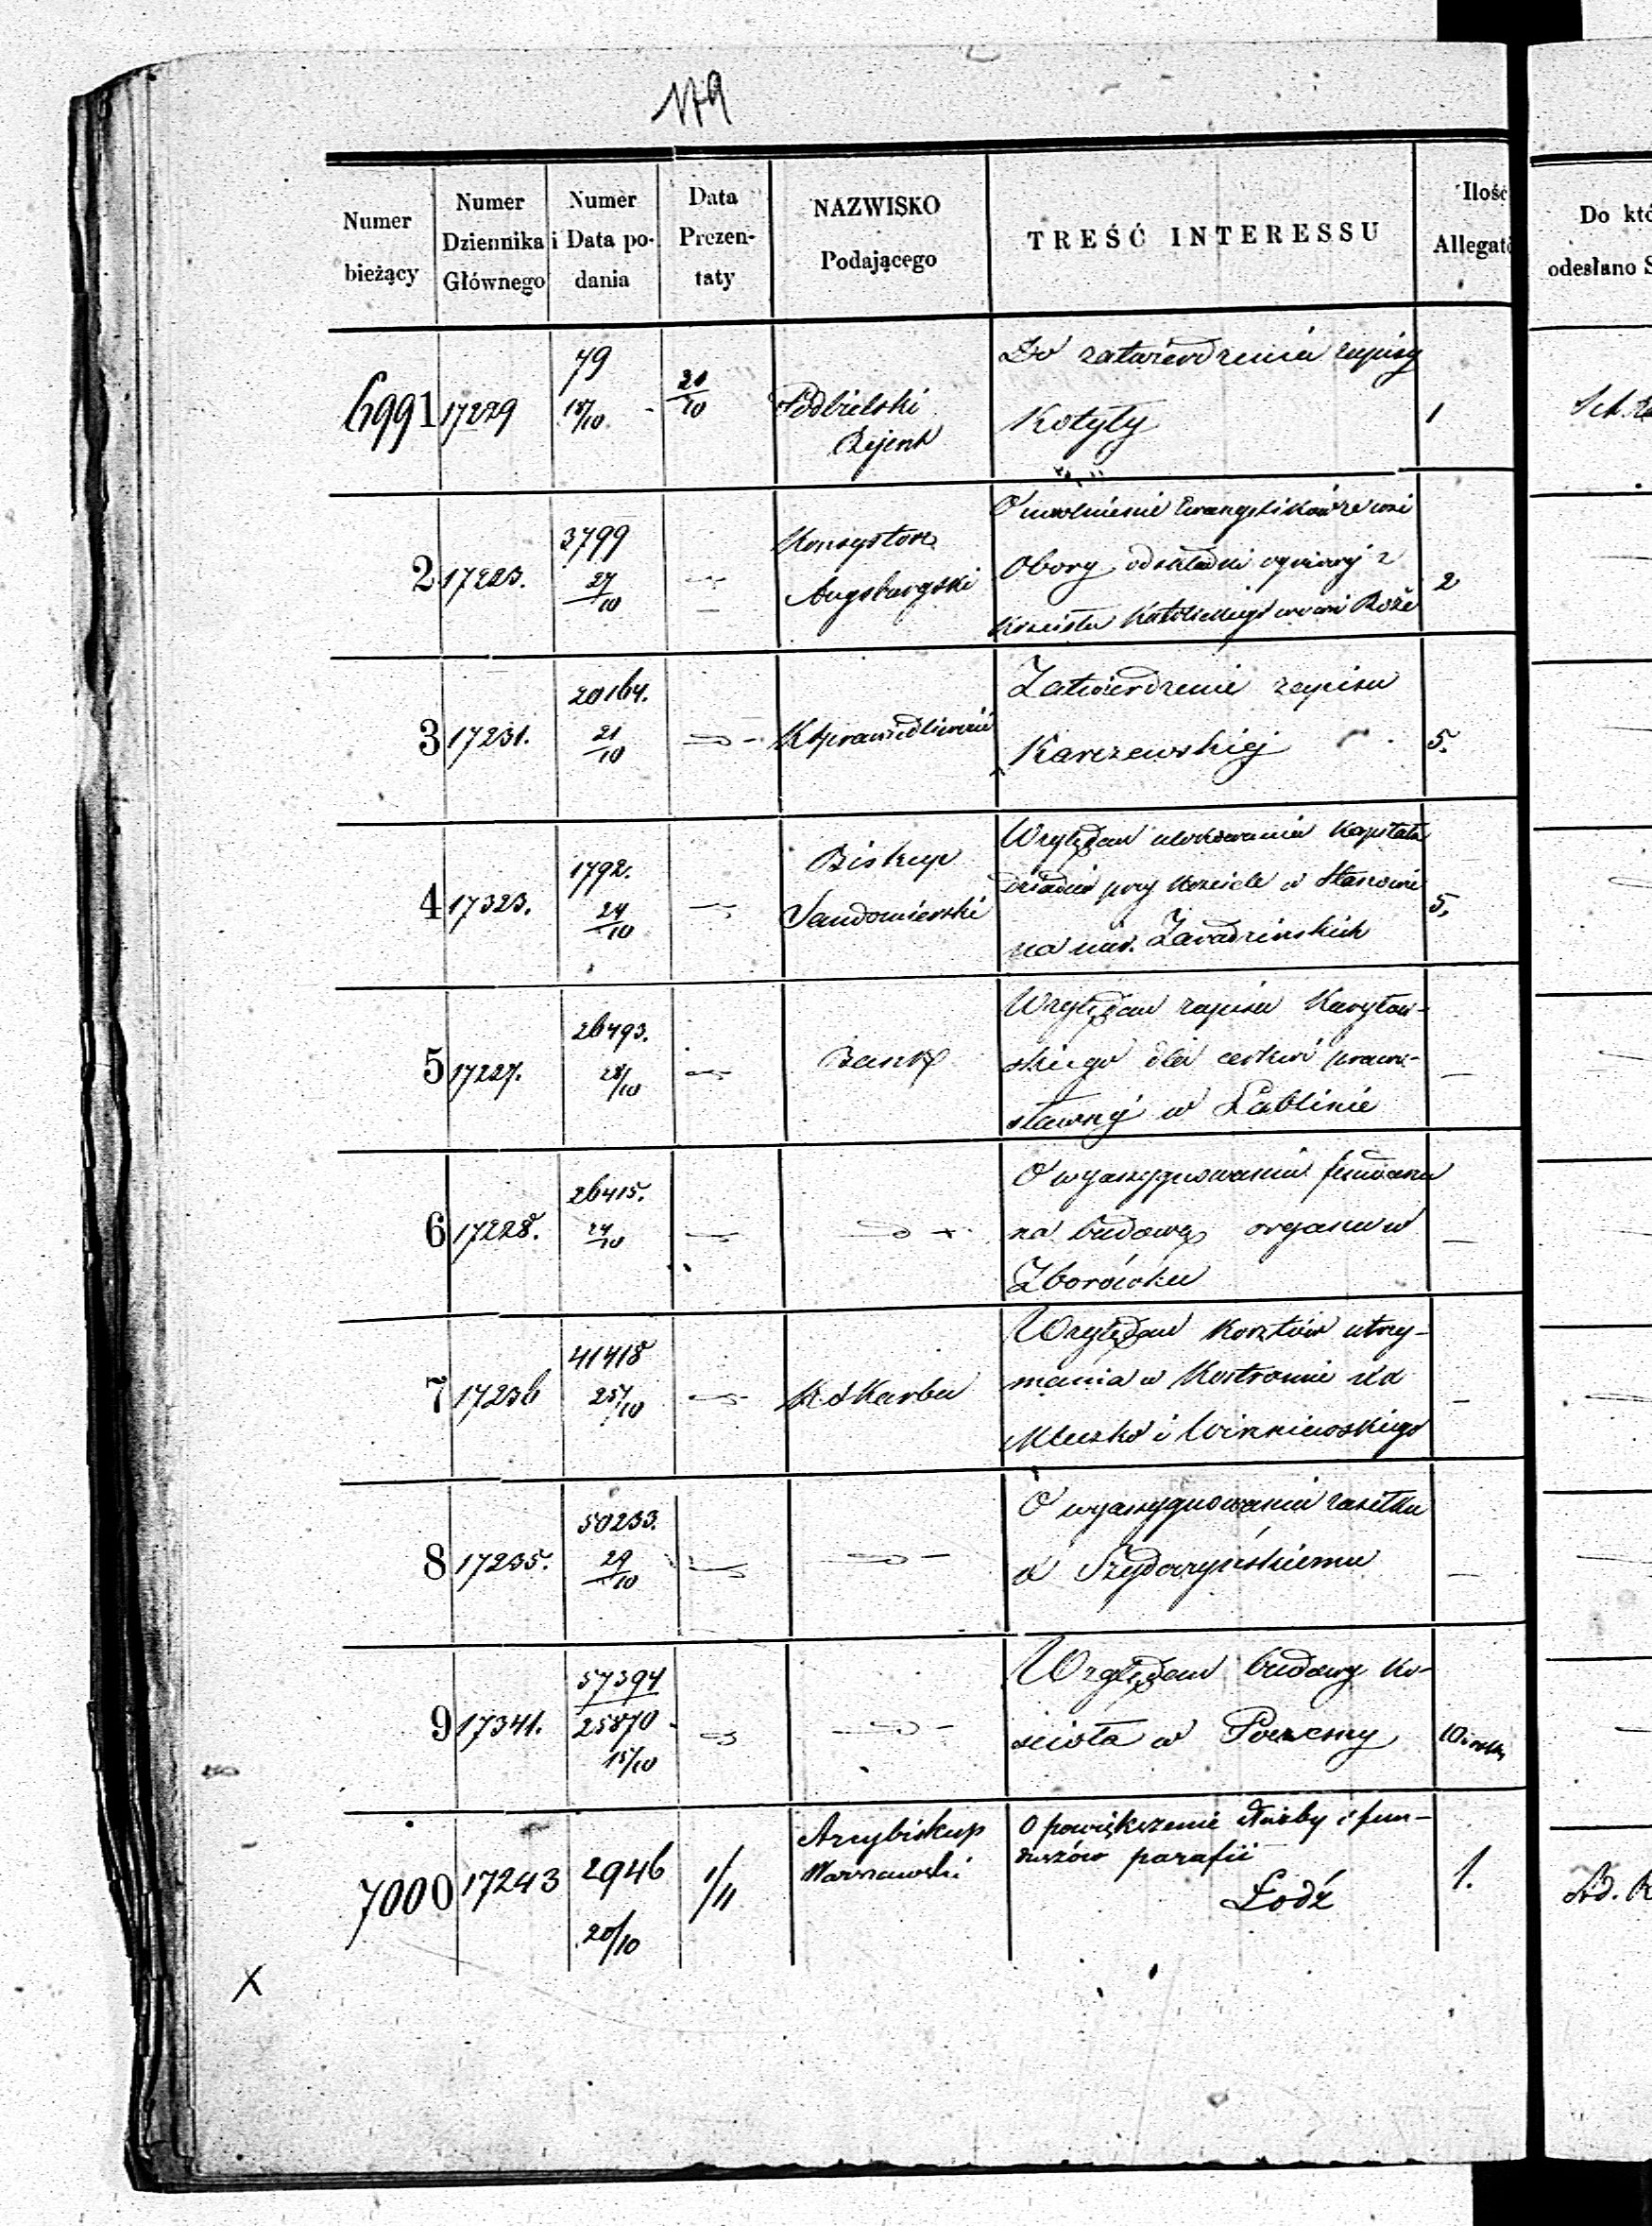 179
Numer bieżący
Numer Dziennika Głównego
Numer i Data po- dania
Data Prezen- taty
NAZWISKO Podającego
TREŚĆ INTERESSU
Ilość
Do któ
odesłano S
6991 17229 79 18/10 21/10 Podbielski Rejent
Do zatwierdzenia zapisy
Kotyły
1
2 17223. 3799 27/10 Konsystorz Augsburgski
O uwolnienie Ewangelików ze wsi
Obory od składki ogniowej z
Kościoła Katolickiego we wsi
2
3 17231. 20164. 21/10 K Sprawiedliwości
Zatwierdzenie zapisu
Karczewskiej
5.
4 17323. 1792. 24/10 Biskup Sandomierski
Względem ulokowania Kapitału
dziadów przy Kościele w
na nier.
5.
5 17227. 26493. 28/10 Bank
Względem zapisu
skiego dla cerkwi prawo-
sławnej w Lublinie
6 17228. 26415. 24/10
O wyassygnowanie funduszu
na budowę organu w
Zborówku
7 17236 41418 25/10 K. Skarbu
Względem kosztów utrzy-
mania w Kostromie xx
Mleczko i Winniewskiego
8 17235. 50233. 29/10
O wyassygnowanie zasiłku
x
9 17341. 57394 25870 15/10
Względem budowy Ko-
ścioła w
7000 17243 2946 20/10 1/11 Arcybiskup Warszawski
O powiększenie służby i fun-
duszów parafii
Łodź
1.
X